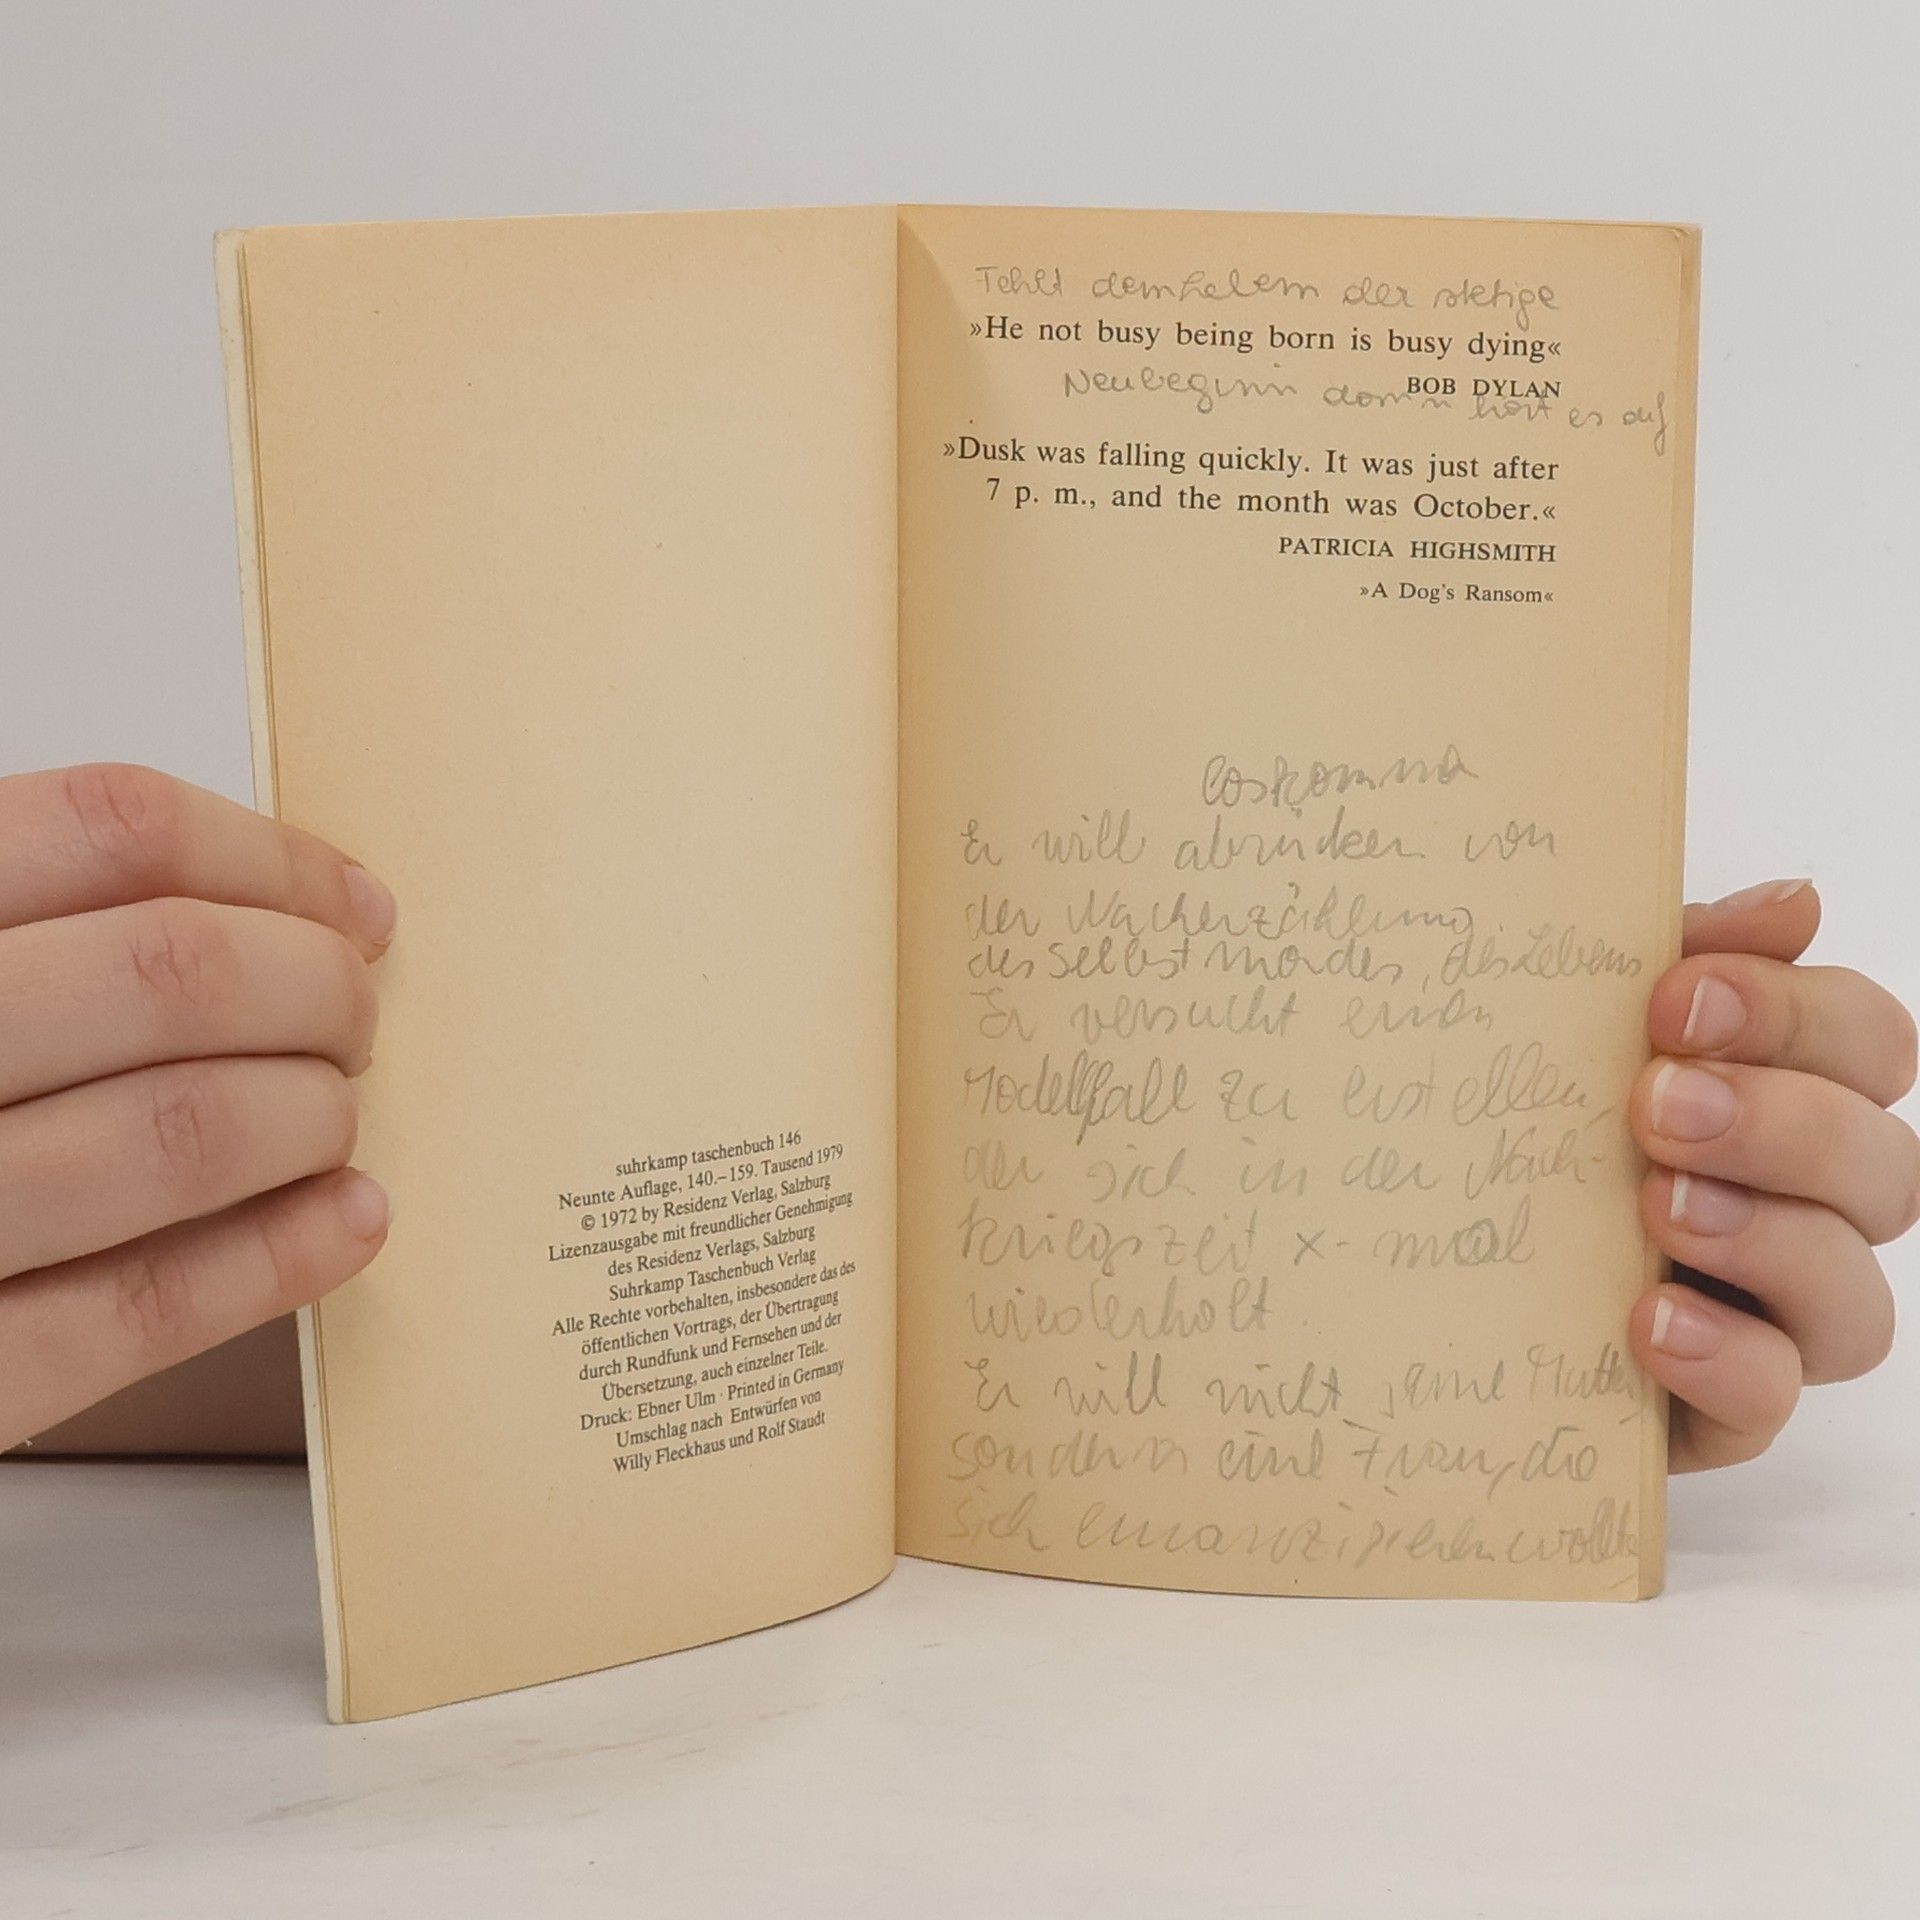 suhrkamp taschenbuch 146
Neunte Auflage, 140.–159. Tausend 1979
© 1972 by Residenz Verlag, Salzburg
Lizenzausgabe mit freundlicher Genehmigung
des Residenz Verlags, Salzburg
Suhrkamp Taschenbuch Verlag
Alle Rechte vorbehalten, insbesondere das des
öffentlichen Vortrags, der Übertragung
durch Rundfunk und Fernsehen und der
Übersetzung, auch einzelner Teile.
Druck: Ebner Ulm · Printed in Germany
Umschlag nach Entwürfen von
Willy Fleckhaus und Rolf Staudt
Fehlt dem der stetige
»He not busy being born is busy dying«
BOB DYLAN
Neubeginn dann hört es auf
»Dusk was falling quickly. It was just after
7 p. m., and the month was October.«
PATRICIA HIGHSMITH
»A Dog's Ransom«
Er will abrücken von
der Nacherzählung
des Selbstmordes, des Lebens
Er versucht einen
Modellfall zu erstellen,
der sich in der Nach-
kriegszeit x-mal
wiederholt.
Er will nicht seine Mutter,
sondern eine Frau, die
sich emanzipieren wollte